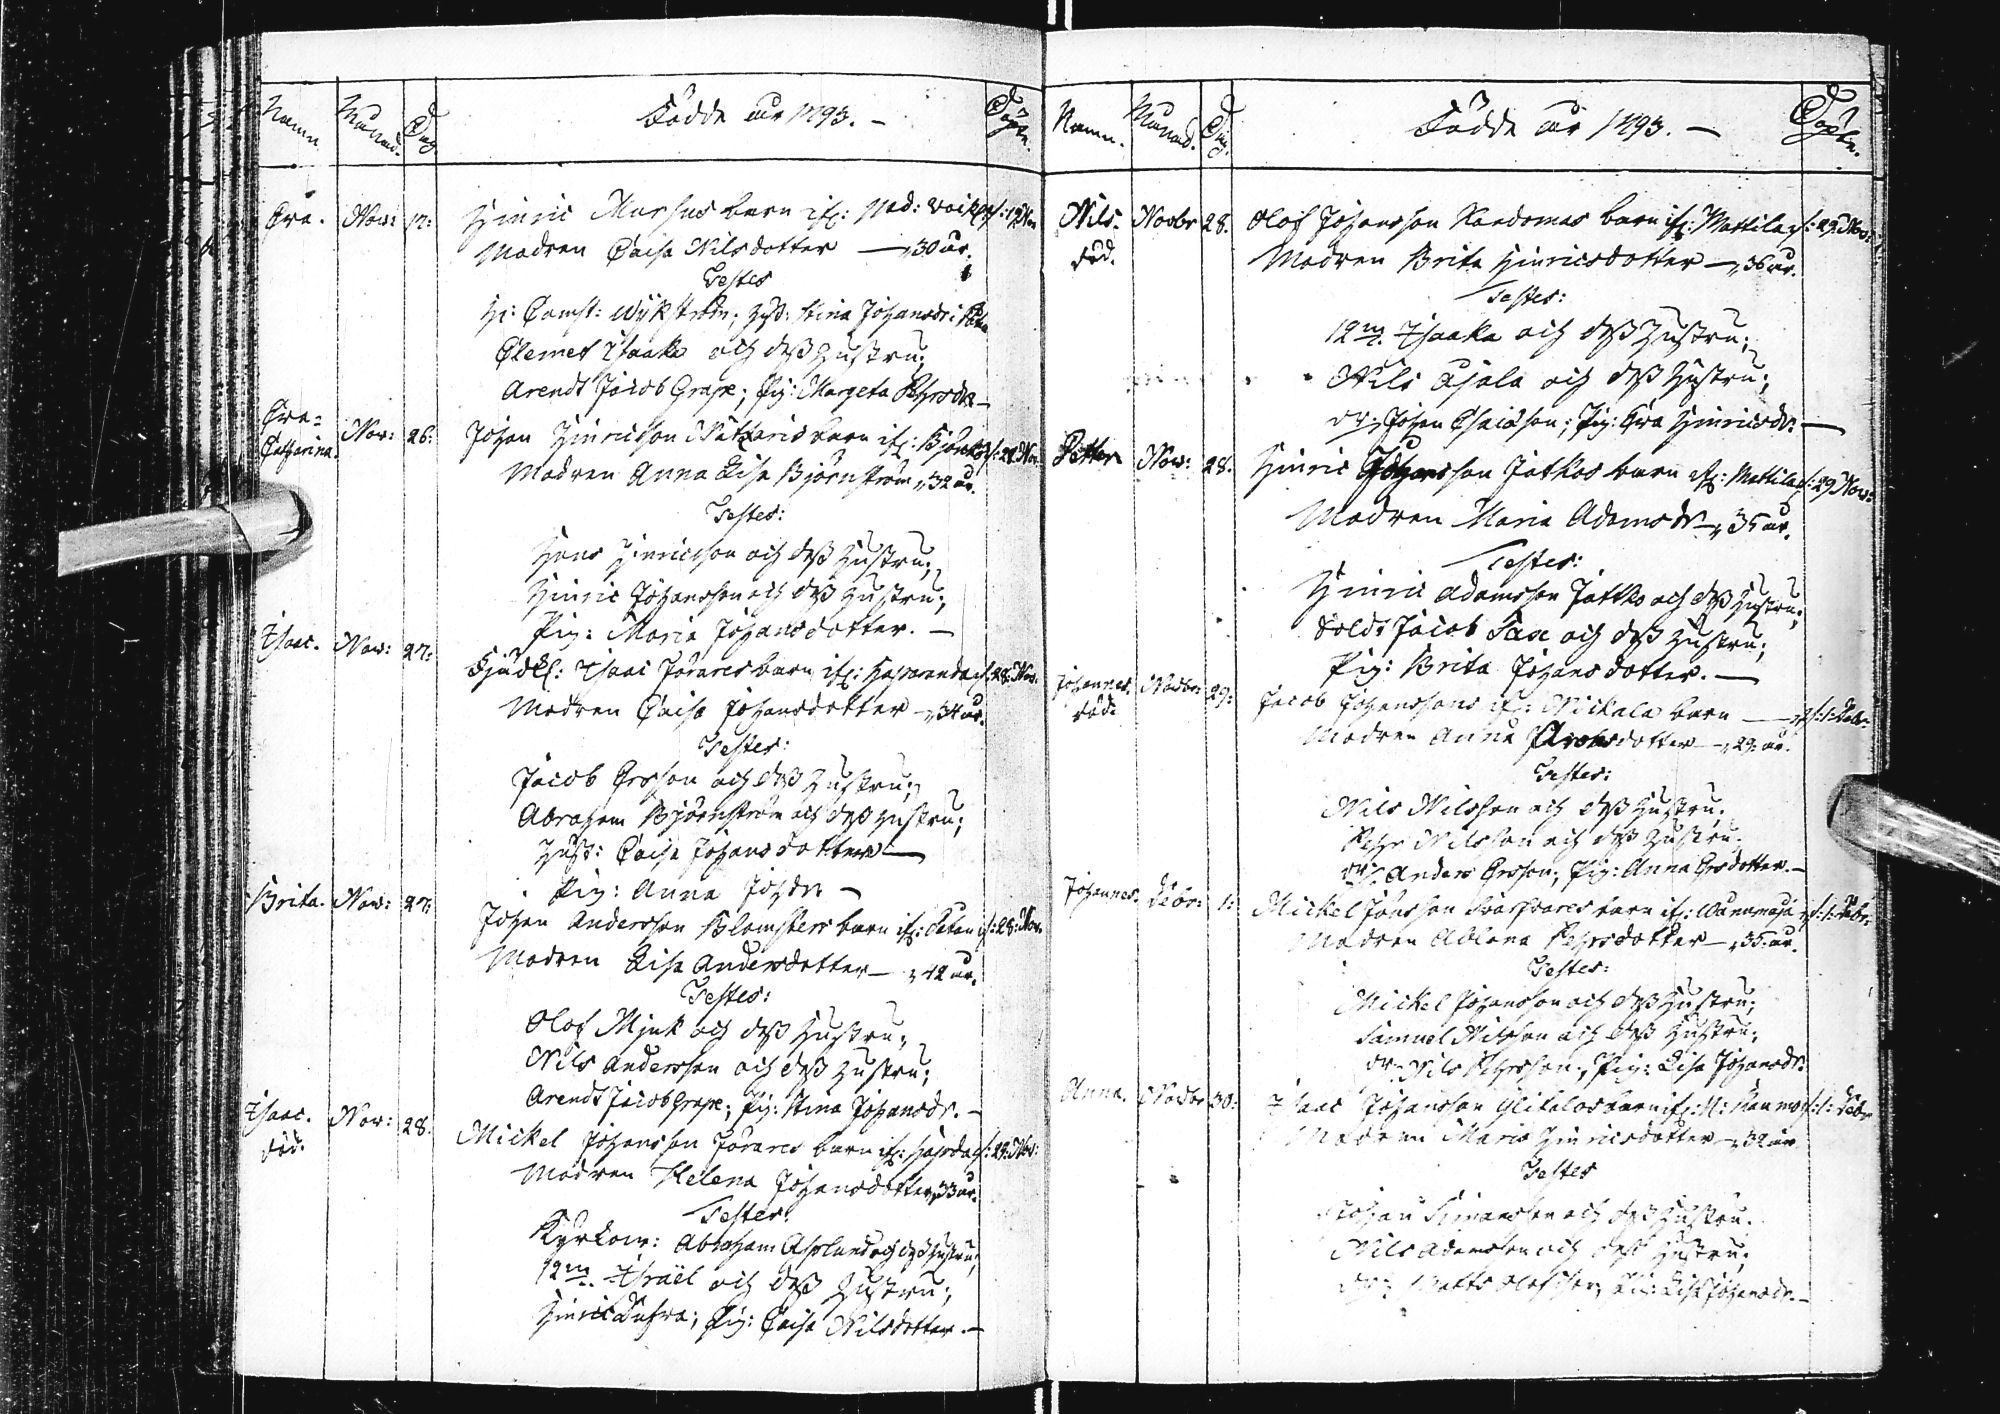 Namn Månad. Dag Födde år 1793. — Döpte.
Eva. Nov: 17: Hinric Marsus barn if: Ned: Voick d: 19 Nov
Modren Caisa Nilsdotter — 30 år.
Testes
Hr: Comst: Wykström; Hust: Stina Johansdr:
Clemet Isaaks och dess Hustru;
Arendt Jacob Grape; Pig: Margeta Pehrsdr —
Eva=
Catharina. Nov: 26: Johan Hinricsson barn if: d: 28 Nov
Modren Anna Lisa Björnström, 32 år.
Testes:
Hans Hinricsson och dess Hustru;
Hinric Johansson och dess Hustru;
Pig: Maria Johansdotter. —
Isaac. Nov: 27: Isaac barn if: Haparanda d: 28: Nov.
Modren Caisa Johansdotter — 34 år.
Testes:
Jacob Ersson och dess Hustru;
Abraham Björnström och dess Hustru;
Hust: Caisa Johansdotter —
Pig: Anna Johdr —
Brita. Nov: 27: Johan Andersson Blomsters barn if: d: 28: Nov.
Modren Lisa Andersdotter — 42 år.
Testes:
Olof Mjuk och dess Hustru;
Nils Andersson och dess Hustru;
Arendt Jacob Grape; Pig: Stina Johansdr. —
Isaac. Nov: 28. Mickel Johansson barn if: d: 29: Nov:
död. Modren Helena Johansdotter, 33 år.
Testes:
Kyrkow: Abraham Asplund och dess Hustru;
12m. Israël och dess Hustru;
Hinric; Pig: Caisa Nilsdotter. —
Namn. Månad. Dag. Födde år 1793. — Döpte.
Nils. Novbr 28. Olof Johansson barn if: Mattila d: 29 Nov:
död. Modren Brita Hinricsdotter — 36 år.
Testes:
12m. Isaaks och dess Hustru;
Nils och dess Hustru;
Dr: Johan Isaicsson; Pig: Eva Hinricsdr. —
Petter Nov: 28. Hinric Johansson Jatkos barn if: Mattila d: 29 Nov:
Modren Maria Adamsdr — 35 år.
Testes:
Hinric Adamsson Jattko och dess Hustru;
Sold: Jacob Sax och dess Hustru;
Pig: Brita Johansdotter. —
Johannes. Novbr: 29: Jacob Johanssons if: Nickala barn — d: 1: Debr.
död. Modren Anna dotter — 29: år.
Testes:
Nils Nilsson och dess Hustru.
Pehr Nilsson och dess Hustru.
Dr: Anders Ersson; Pig: Anna Ersdotter. —
Johannes. Debr: 1: Mickel Jönsson barn if: d: 1: Debr:
Modren Ablona Pehrsdotter — 35 år.
Testes:
Mickel Johansson och dess Hustru;
Samuel Nilsson och dess Hustru;
Dr: Nils Pehrsson; Pig: Lisa Johansdr.
Anna. Novbr 30: Isaac Johansson barn if: d: 1: Debr
Modren Maria Hinricsdotter — 32 år.
Testes
Johan Simonsson och dess Hustru.
Nils Adamsson och dess Hustru;
Dr: Matts Olofsson; Pig: Lisa Johansdr. —